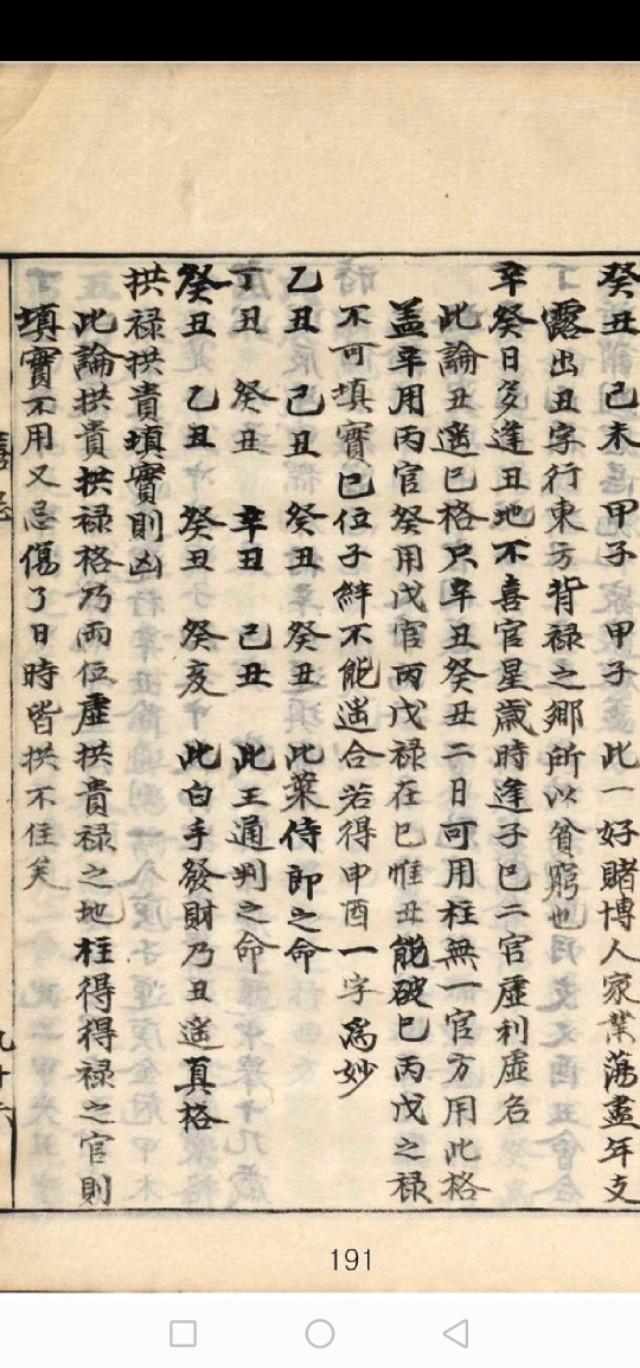 癸丑 己未 甲子 甲子 此一好賭博人家業蕩盡年支
露出丑字行東方背禄之鄉所以貧窮也
辛癸日多逢丑地不喜官星歲時逢子巳二官虛利虛名
此論丑遙巳格只辛丑癸丑二日可用柱無一官方用此格
盖辛用丙官癸用戊官丙戊禄在巳惟丑能破巳丙戊之禄
不可填實巳位子絆不能遙合若得申酉一字為妙
乙丑 己丑 癸丑 癸丑 此葉侍郎之命
丁丑 癸丑 辛丑 己丑 此王通判之命
癸丑 乙丑 癸丑 癸亥 此白手發財乃丑遙真格
拱禄拱貴填實則凶
此論拱貴拱禄格乃兩位虛拱貴禄之地柱得得禄之官則
填實不用又忌傷了日時皆拱不住矣
九十六
191